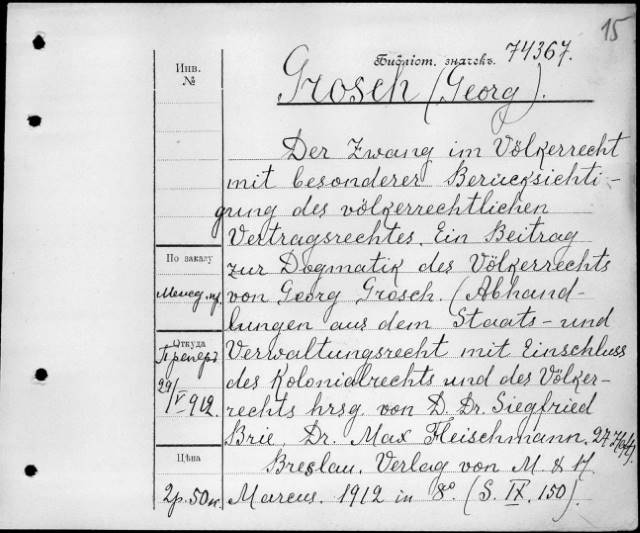 15
Библіот. значекъ. 74367.
Инв.
№
Grosch (Georg).
Der Zwang im Völkerrecht
mit besonderer Berücksichti-
gung des völkerrechtlichen
Vertragsrechtes. Ein Beitrag
По заказу
zur Dogmatik des Völkerrechts
von Georg Grosch. (Abhand-
lungen aus dem Staats- und
Откуда
Verwaltungsrecht mit Einschluss
des Kolonialrechts und des Völker-
29/V 912.
rechts hrsg. von D. Dr. Siegfried
Brie, Dr. Max Fleischmann. 27
Цѣна
Breslau. Verlag von M. & H.
2р. 50к.
Marcus. 1912 in 8º. (S. IX, 150).